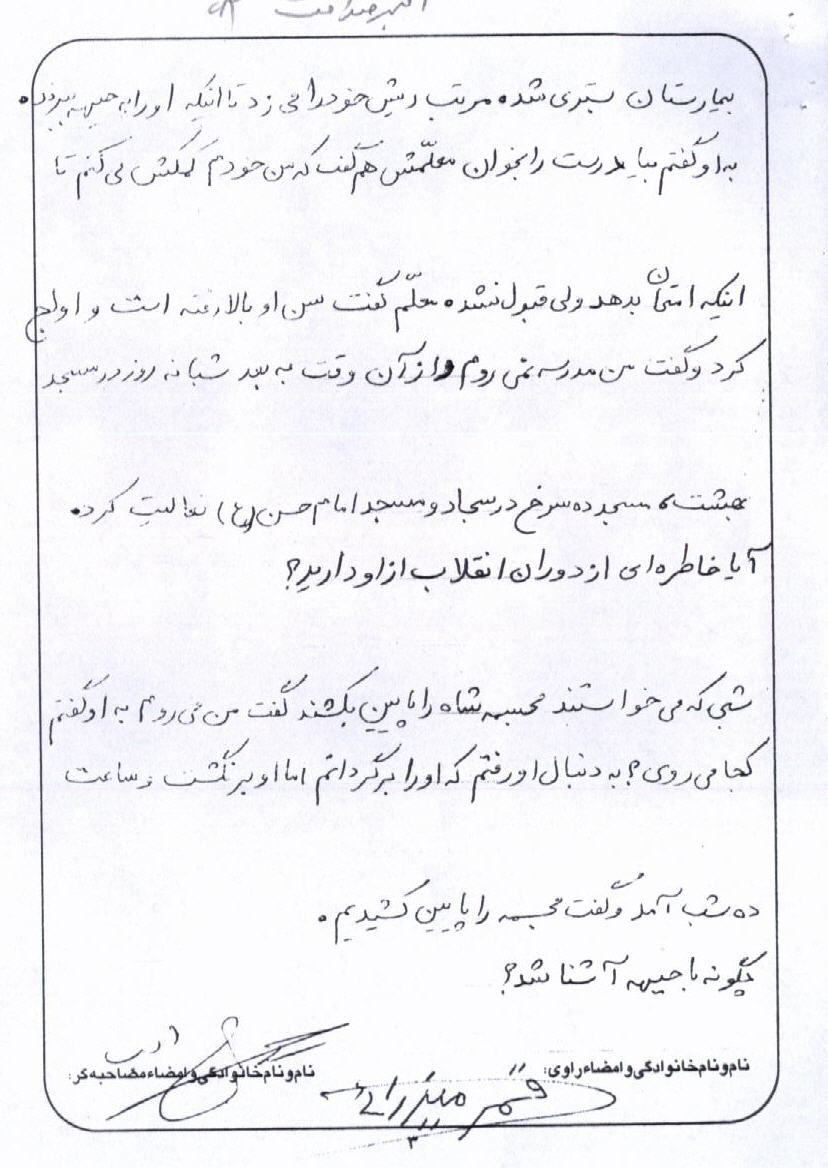 بیمارستان بستری شده مرتب ریش خود را می زد تا اینکه او را به جبهه ببرند.
به او گفتم بیا درست را بخوان معلّمش هم گفت که من خودم کمکش می کنم تا
اینکه امتحان بدهد ولی قبول نشد معلّم گفت سن او بالا رفته است و او لج
کرد و گفت من مدرسه نمی روم و از آن وقت به بعد شبانه روز در مسجد
هشت، مسجد ده سرخ در سجاد و مسجد امام حسن (ع) فعالیت کرد.
آیا خاطره ای از دوران انقلاب از او دارید؟
شبی که می خواستند مجسمه شاه را پایین بکشند گفت من می روم به او گفتم
کجا می روی؟ به دنبال او رفتم که او را برگردانم اما او برنگشت و ساعت
ده شب آمد و گفت مجسمه را پایین کشیدیم.
چگونه با جبهه آشنا شد؟
نام و نام خانوادگی و امضاء راوی:
نام و نام خانوادگی و امضاء مصاحبه گر:
۳